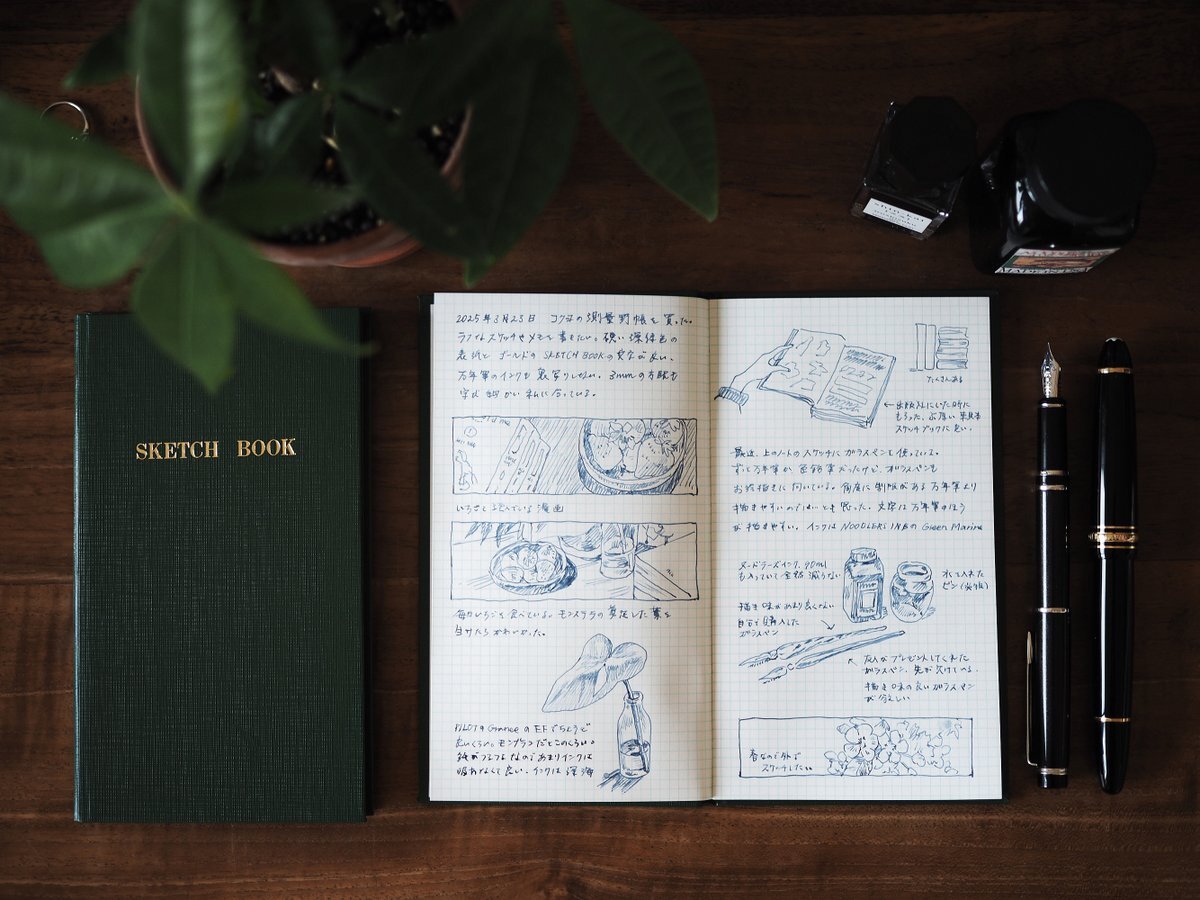 SKETCH BOOK
2025年3月23日 コクヨの測量野帳を買った。
ラフなスケッチやメモを書きたい。硬い深緑色の
表紙と ゴールドの SKETCH BOOKの文字が良い。
万年筆のインクも裏写りしない。3mmの方眼も
字が細かい私に合っている。
いちごと読んでいる漫画
毎日いちごを食べている。モンステラの剪定した葉を
自けたら かわいかった。
PILOTの Grance の EFで5ようど
良いくらい。モンブランだとこのくらい。
紙がツルツルなのであまりインクは
吸わなくて良い。インクは 深海
たくさんある
←出版入しにいた時に
もらった、ぶ厚い
スケッチブックに良い。
最近、上のノートのスケッチにガラスペンを使っている。
ずっと万年筆か色鉛筆だったけど、ガラスペンも
お絵描きに向いている。角度に制限がある万年筆より
描きやすいのではとも思った。文字は万年筆のほう
が描きやすい。インクは NOODLER'S INKの Green Marine
ヌードラーズインク、90ml
も入っていて全然減らない
水を入れた
ビン
描き味があまり良くない
自分で購入した
ガラスペン
友人がプレゼントしてくれた
ガラスペン、先が欠けている。
描き味の良いガラスペン
が欲しい
春なので外で
スケッチしたい。
shinkai